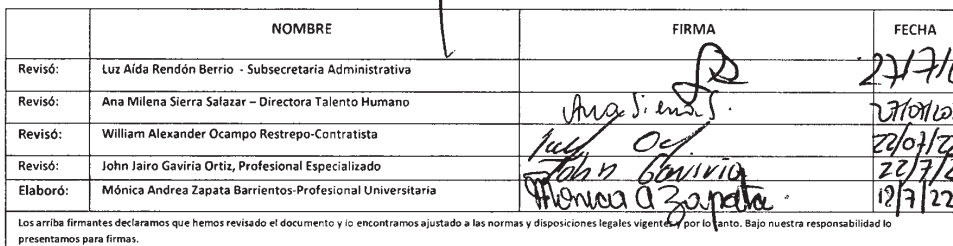 NOMBRE FIRMA FECHA
Revisó: Luz Aída Rendón Berrio - Subsecretaria Administrativa 27/7/
Revisó: Ana Milena Sierra Salazar – Directora Talento Humano Ana Sierra S. 27/07/20
Revisó: William Alexander Ocampo Restrepo-Contratista 22/07/22
Revisó: John Jairo Gaviria Ortiz, Profesional Especializado John Gaviria 22/7/2
Elaboró: Mónica Andrea Zapata Barrientos-Profesional Universitaria Monica A Zapata. 19/7/22
Los arriba firmantes declaramos que hemos revisado el documento y lo encontramos ajustado a las normas y disposiciones legales vigentes y por lo tanto. Bajo nuestra responsabilidad lo
presentamos para firmas.